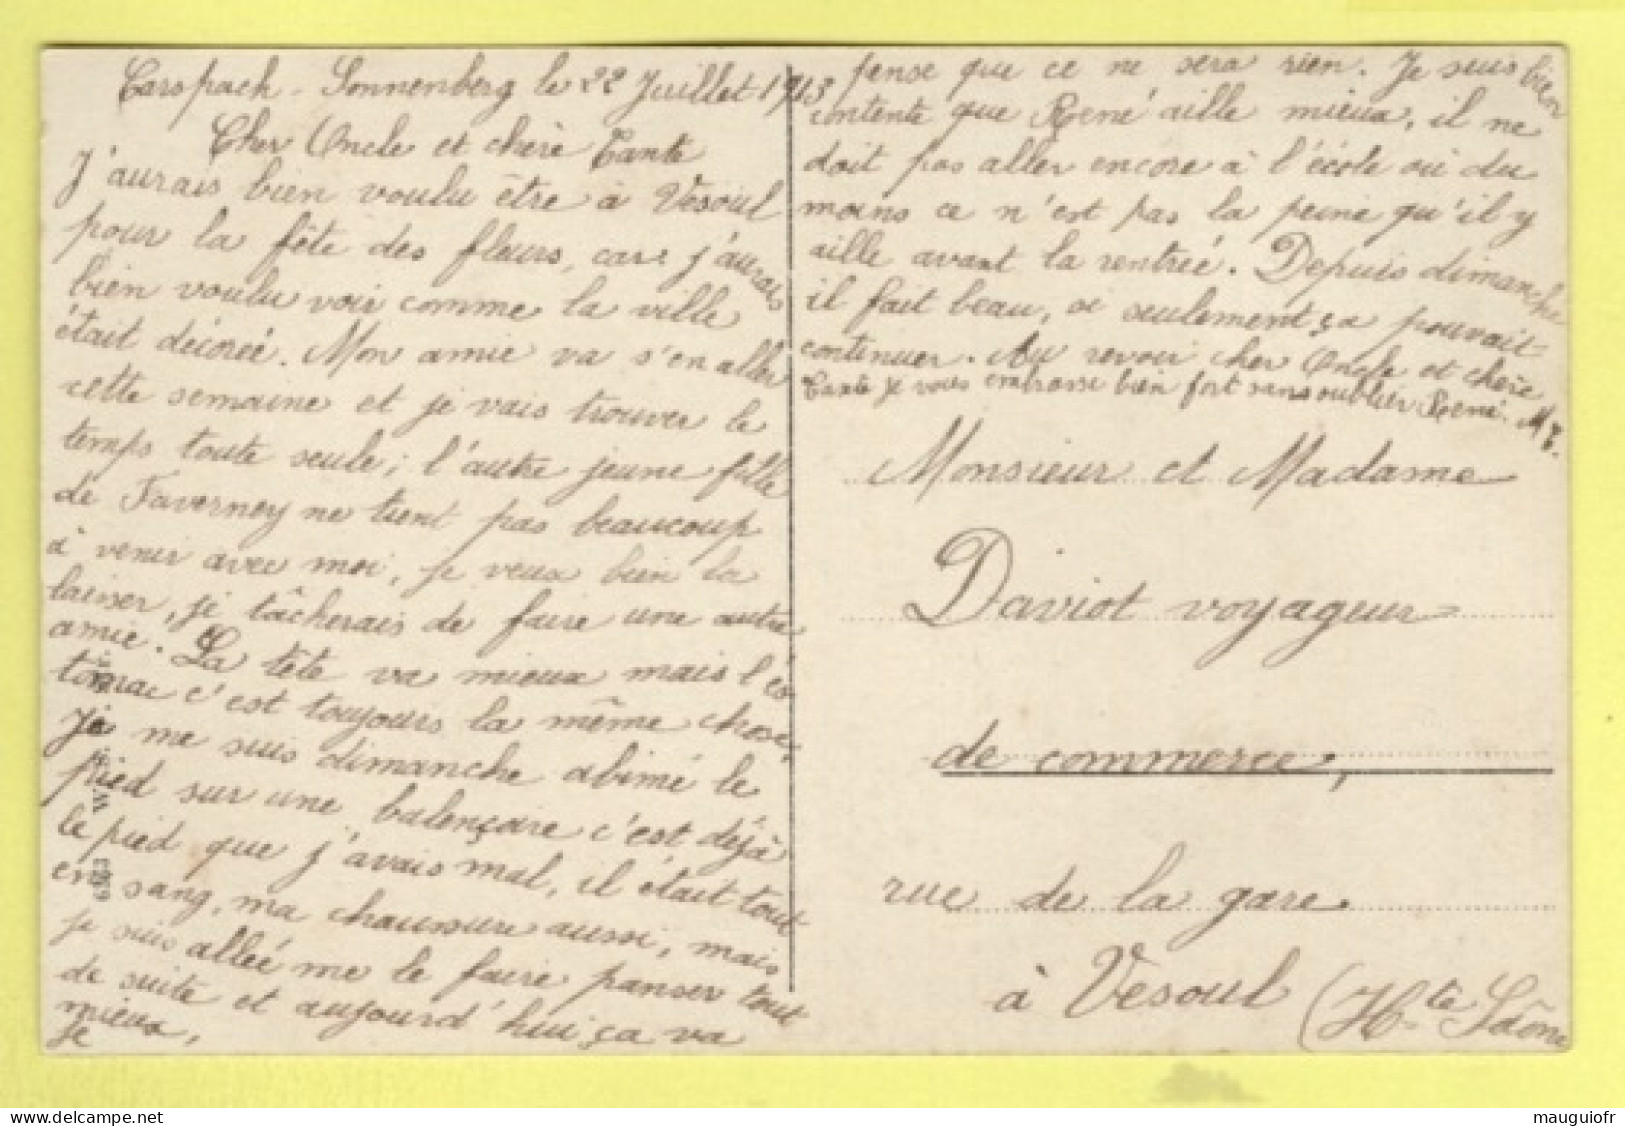 Carspach - Sonnenberg le 22 Juillet 1913
Cher Oncle et chère Tante
J'aurais bien voulu être à Vesoul
pour la fête des fleurs, car j'aurais
bien voulu voir comme la ville
était décorée. Mon amie va s'en aller
cette semaine et je vais trouver le
temps toute seule; l'autre jeune fille
de Faverney ne tient pas beaucoup
à venir avec moi, je veux bien la
laisser, je tâcherais de faire une autre
amie. La tête va mieux mais l'es
tomac c'est toujours la même chose,
Je me suis dimanche abimé le
pied sur une balençoire c'est déjà
le pied que j'avais mal, il était tout
en sang, ma chaussure aussi, mais
je suis allée me le faire panser tout
de suite et aujourd'hui ça va
mieux,
Je
pense que ce ne sera rien. Je suis bien
contente que René aille mieux, il ne
doit pas aller encore à l'école où du
moins ce n'est pas la peine qu'il y
aille avant la rentrée. Depuis dimanche
il fait beau, si seulement ça pouvait
continuer. Au revoir cher Oncle et chère
Tante je vous embrasse bien fort sans oublier René. M T.
Monsieur et Madame
Daviot voyageur
de commerce,
rue de la gare
à Vesoul (Hte Saône
mauguiofr